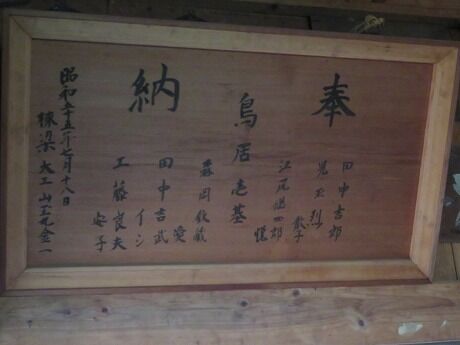 奉
田中吉郎
児玉烈
敬子
江尻慎四郎
鳥居壱基
森岡
納
田中吉武
愛
イシ
工藤良夫
安子
昭和五十五年七月十八日
棟梁 大工 山王丸金一